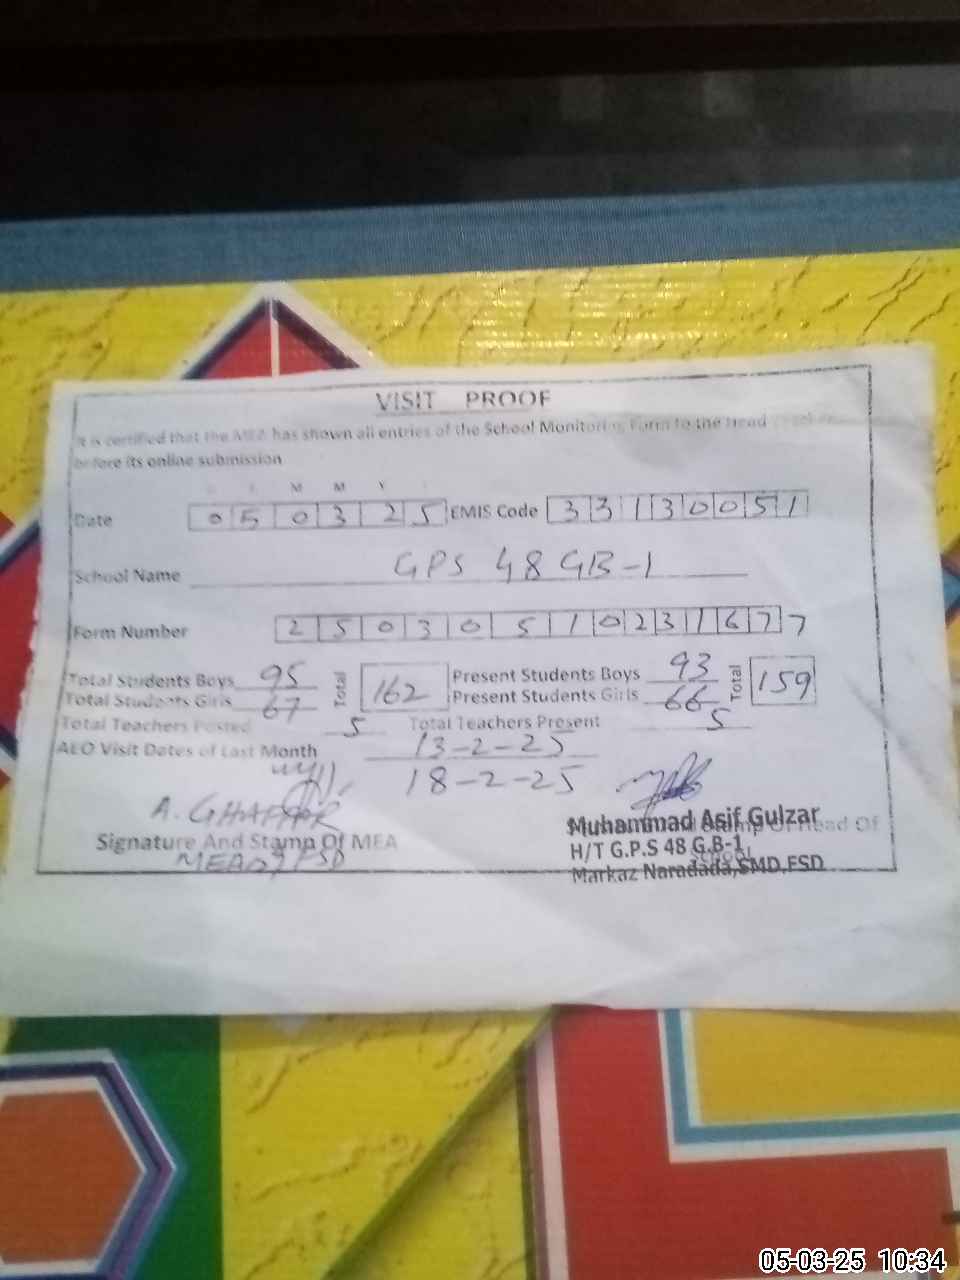 VISIT PROOF
It is certified that the MEA has shown all entries of the School Monitoring Form to the Head
before its online submission
M M Y
Date 050325 EMIS Code 33130051
School Name GPS 48 GB-1
Form Number 2503051023167 7
Total Students Boys 95 Total 162 Present Students Boys 93 Total 159
Total Students Girls 67 Present Students Girls 66
Total Teachers Posted 5 Total Teachers Present 5
AEO Visit Dates of Last Month 13-2-25
18-2-25
A. GHAFFAR
Signature And Stamp Of MEA
Muhammad Asif Gulzar
Stamp Of Head Of
H/T G.P.S 48 G.B-1
School
Markaz Naradada,SMD,FSD
05-03-25 10:34